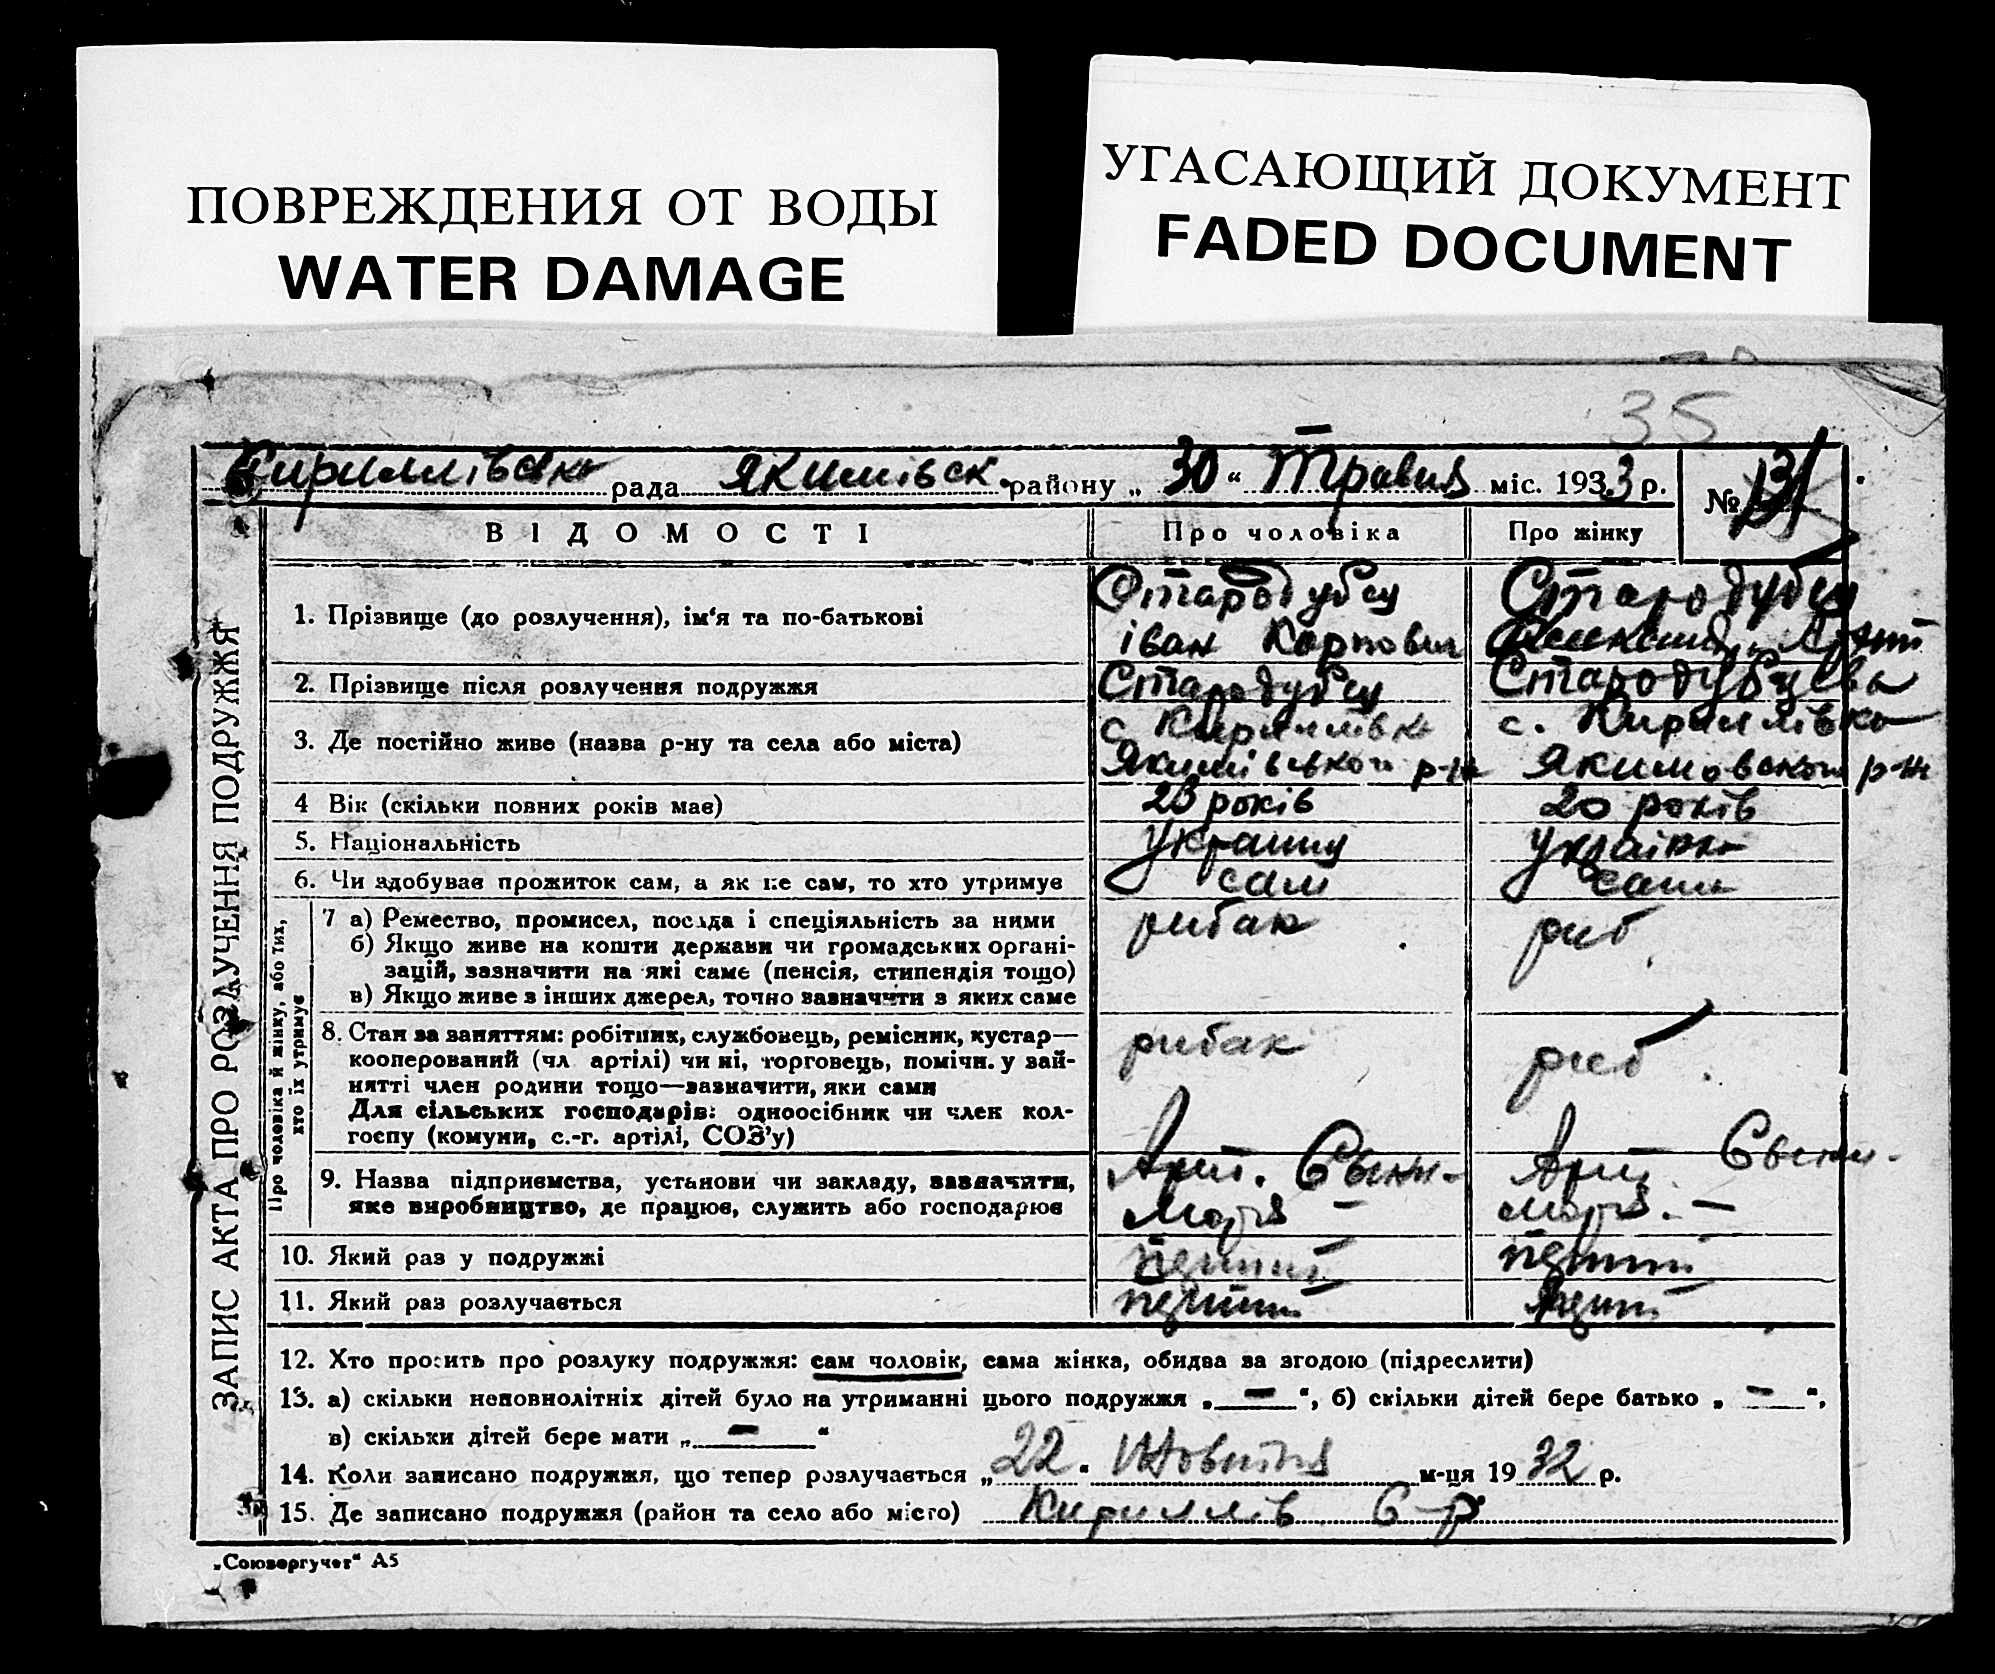 ПОВРЕЖДЕНИЯ ОТ ВОДЫ
WATER DAMAGE
УГАСАЮЩИЙ ДОКУМЕНТ
FADED DOCUMENT
35
Кириллівска рада Якимівск. району „ 30 “ Травня міс. 1933 р.
№ 31
ЗАПИС АКТА ПРО РОЗЛУЧЕННЯ ПОДРУЖЖЯ
ВІДОМОСТІ Про чоловіка Про жінку
1. Прізвище (до розлучення), ім‘я та по-батькові
Стародубец Стародубец
іван Карпович
2. Прізвище після розлучення подружжя Стародубец Стародубцева
3. Де постійно живе (назва р-ну та села або міста)
с. Кириллівка с. Кириллівка
Якимівськой р-н Якимовской р-н
4 Вік (скільки повних років має) 23 років 20 років
5. Національність Українец Українка
6. Чи здобував прожиток сам, а як не сам, то хто утримує сам сама
Про чоловіка й жінку, або тих, хто їх утримує
7 а) Ремество, промисел, посада і спеціяльність за ними рибак риб
б) Якщо живе на кошти держави чи громадських органі-
зацій, зазначити на які саме (пенсія, стипендія тощо)
в) Якщо живе з інших джерел, точно зазначити з яких саме
8. Стан за заняттям: робітник, службовець, ремісник, кустар— рибак риб.
кооперований (чл артілі) чи ні, торговець, помічн. у зай-
нятті член родини тощо—зазначити, яки сами
Для сільських господарів: одноосібник чи член кол-
госпу (комуни, с.-г. артілі, СОЗ’у)
9. Назва підприємства, установи чи закладу, зазначити, Арт. Арт.
яке виробництво, де працює, служить або господарює
10. Який раз у подружжі перший перший
11. Який раз розлучається перший перший
12. Хто просить про розлуку подружжя: сам чоловік, сама жінка, обидва за згодою (підреслити)
13. а) скільки неповнолітніх дітей було на утриманні цього подружжя „ — “, б) скільки дітей бере батько „ — “,
в) скільки дітей бере мати „ — “
14. Коли записано подружжя, що тепер розлучається „ 22 “ Жовтня м-ця 1932 р.
15. Де записано подружжя (район та село або місто) Кириллів С-р
„Союзоргучет“ А5